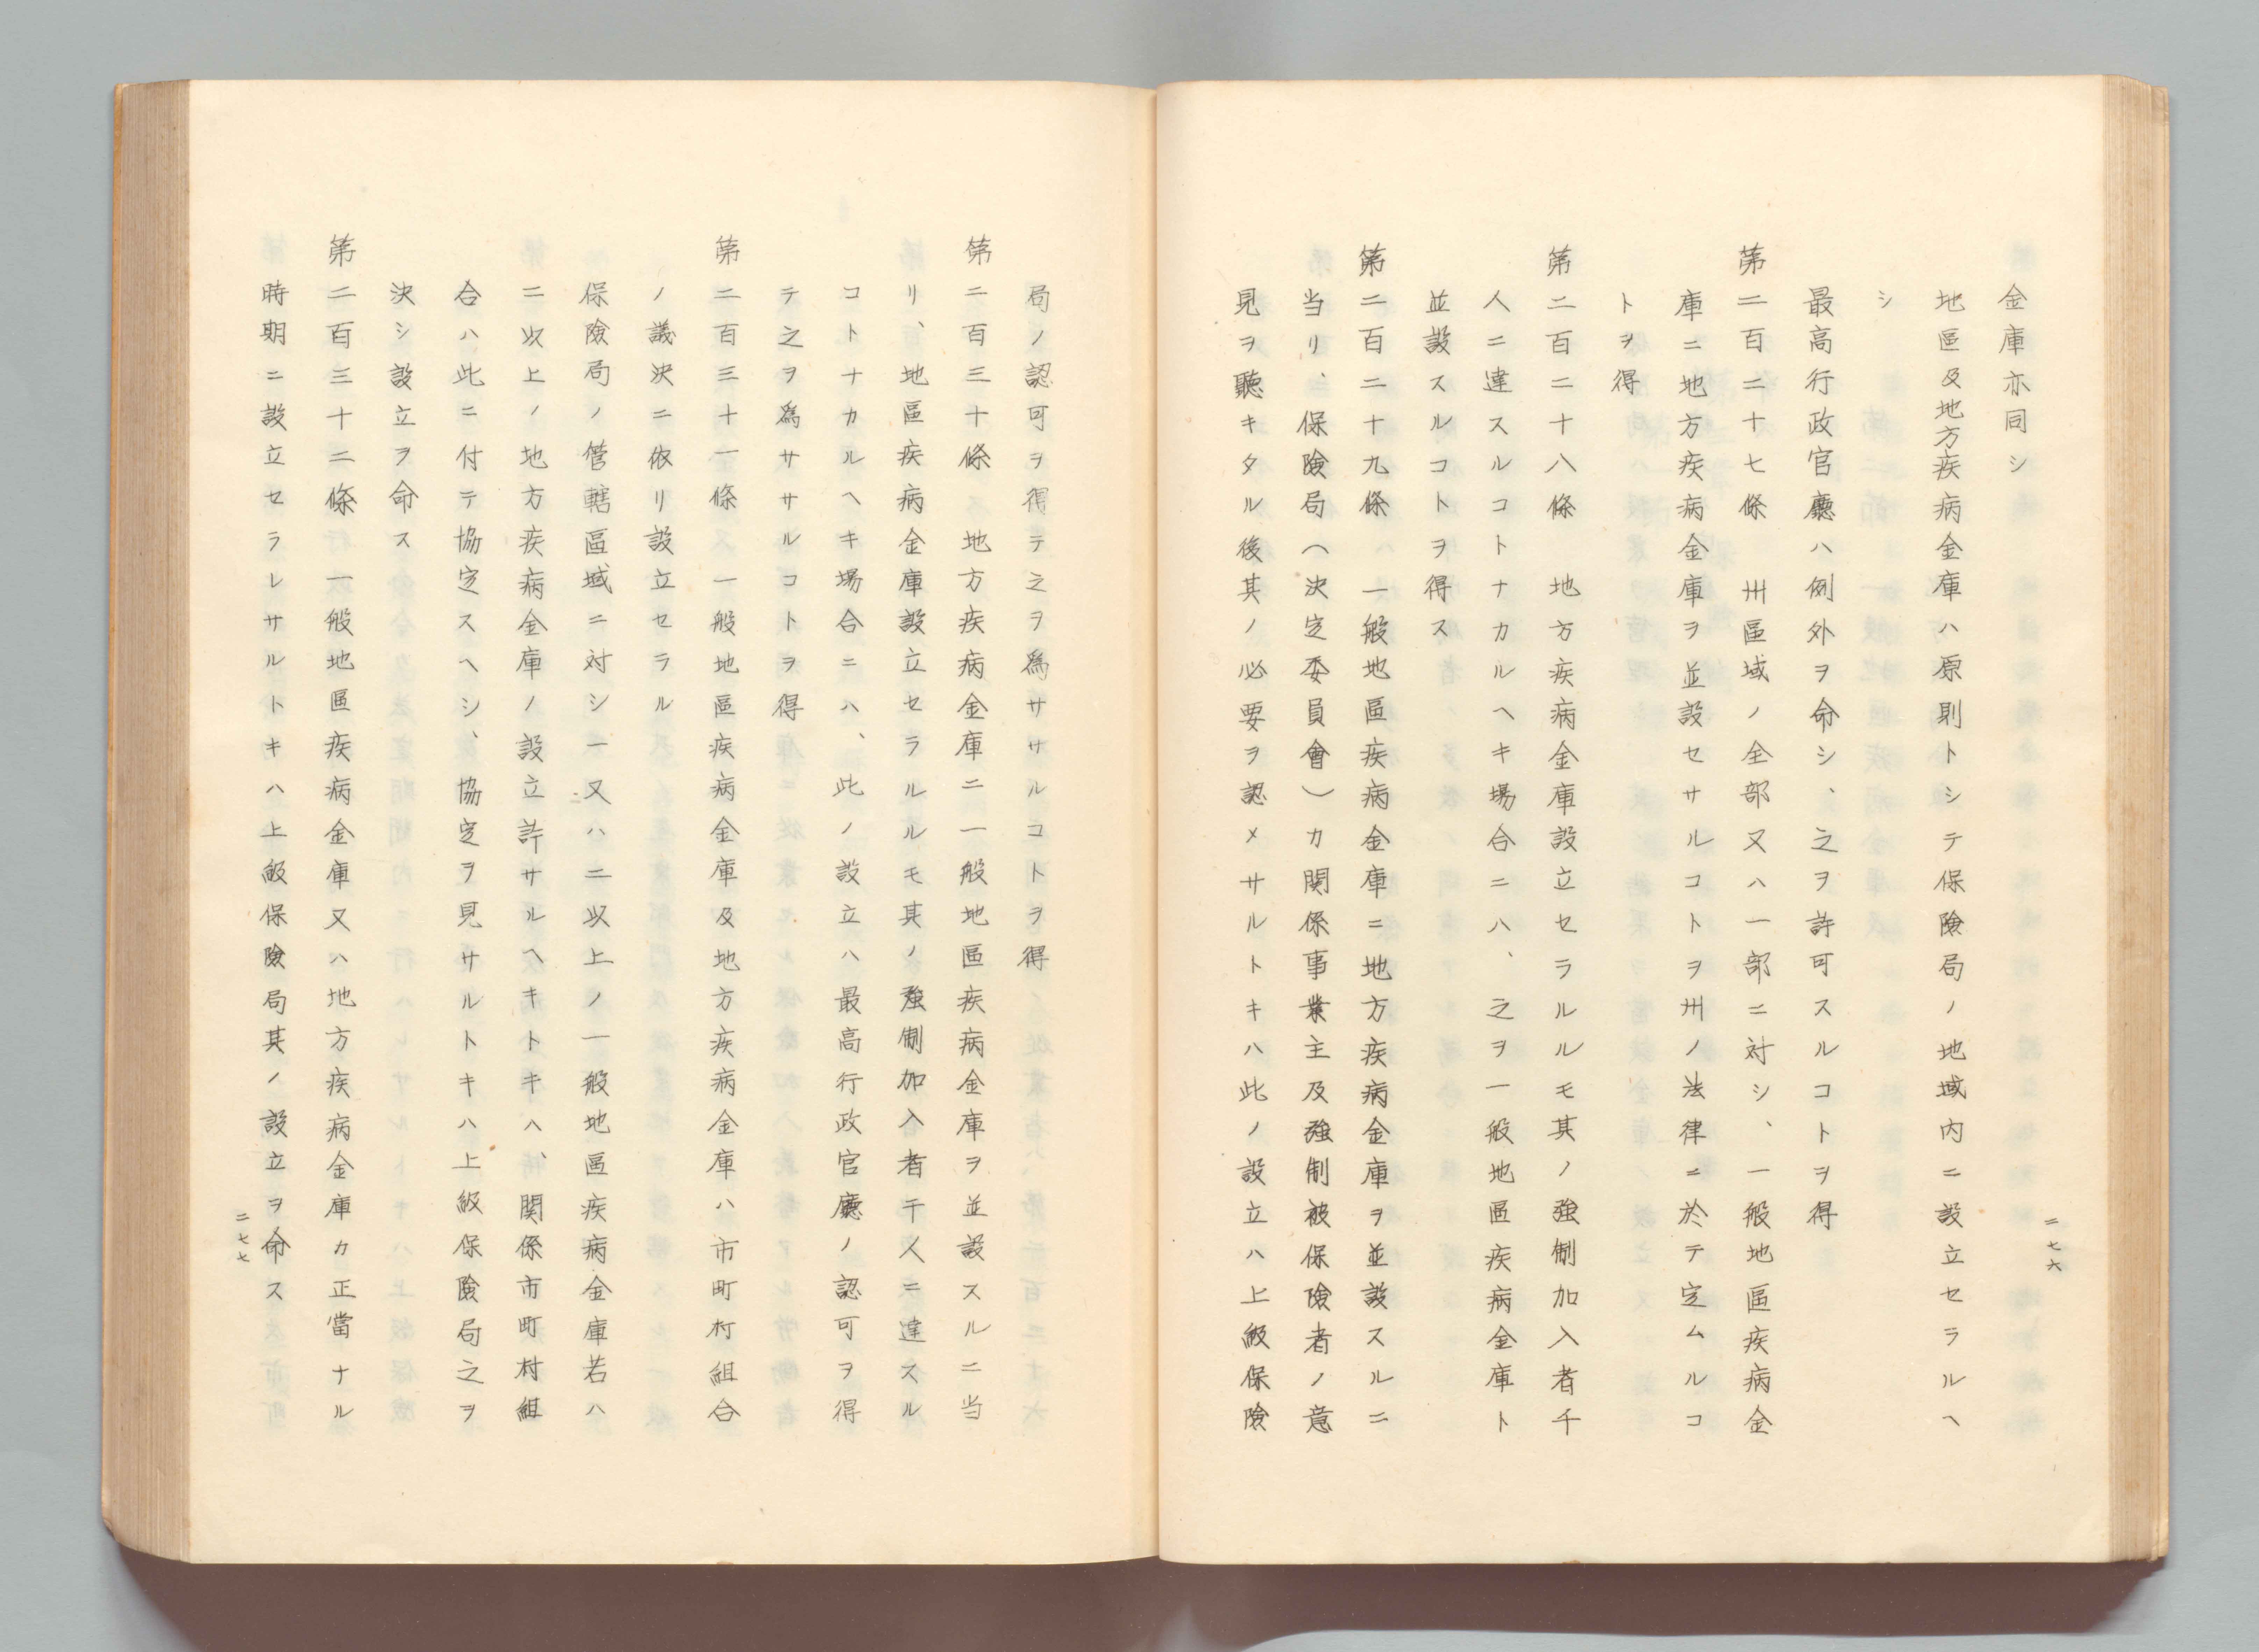 金庫亦同シ
地區及地方疾病金庫ハ原則トシテ保險局ノ地域内ニ設立セラルヘ
シ
最高行政官廳ハ例外ヲ命シ、之ヲ許可スルコトヲ得
第二百二十七條　州區域ノ全部又ハ一部ニ対シ、一般地區疾病金
庫ニ地方疾病金庫ヲ並設セサルコトヲ州ノ法律ニ於テ定ムルコ
トヲ得
第二百二十八條　地方疾病金庫設立セラルルモ其ノ強制加入者千
人ニ達スルコトナカルヘキ場合ニハ、之ヲ一般地區疾病金庫ト
並設スルコトヲ得ス
第二百二十九條　一般地區疾病金庫ニ地方疾病金庫ヲ並設スルニ
当リ、保險局（決定委員會）カ関係事業主及強制被保險者ノ意
見ヲ聽キタル後其ノ必要ヲ認メサルトキハ此ノ設立ハ上級保險
二七六
局ノ認可ヲ得テ之ヲ爲サルコトヲ得
第二百三十條　地方疾病金庫ニ一般地區疾病金庫ヲ並設スルニ当
リ、地區疾病金庫設立セラルルモ其ノ強制加入者千人ニ達スル
コトナカルヘキ場合ニハ、此ノ設立ハ最高行政官廳ノ認可ヲ得
テ之ヲ爲サルコトヲ得
第二百三十一條　一般地區疾病金庫及地方疾病金庫ハ市町村組合
ノ議決ニ依リ設立セラル
保險局ノ管轄區域ニ対シ一又ハ二以上ノ一般地區疾病金庫若ハ
二以上ノ地方疾病金庫ノ設立許サルヘキトキハ、関係市町村組
合ハ此ニ付テ協定スヘシ、協定ヲ見サルトキハ上級保險局之ヲ
決シ設立ヲ命ス
第二百三十二條　一般地區疾病金庫又ハ地方疾病金庫カ正當ナル
時期ニ設立セラレサルトキハ上級保險局其ノ設立ヲ命ス
二七七